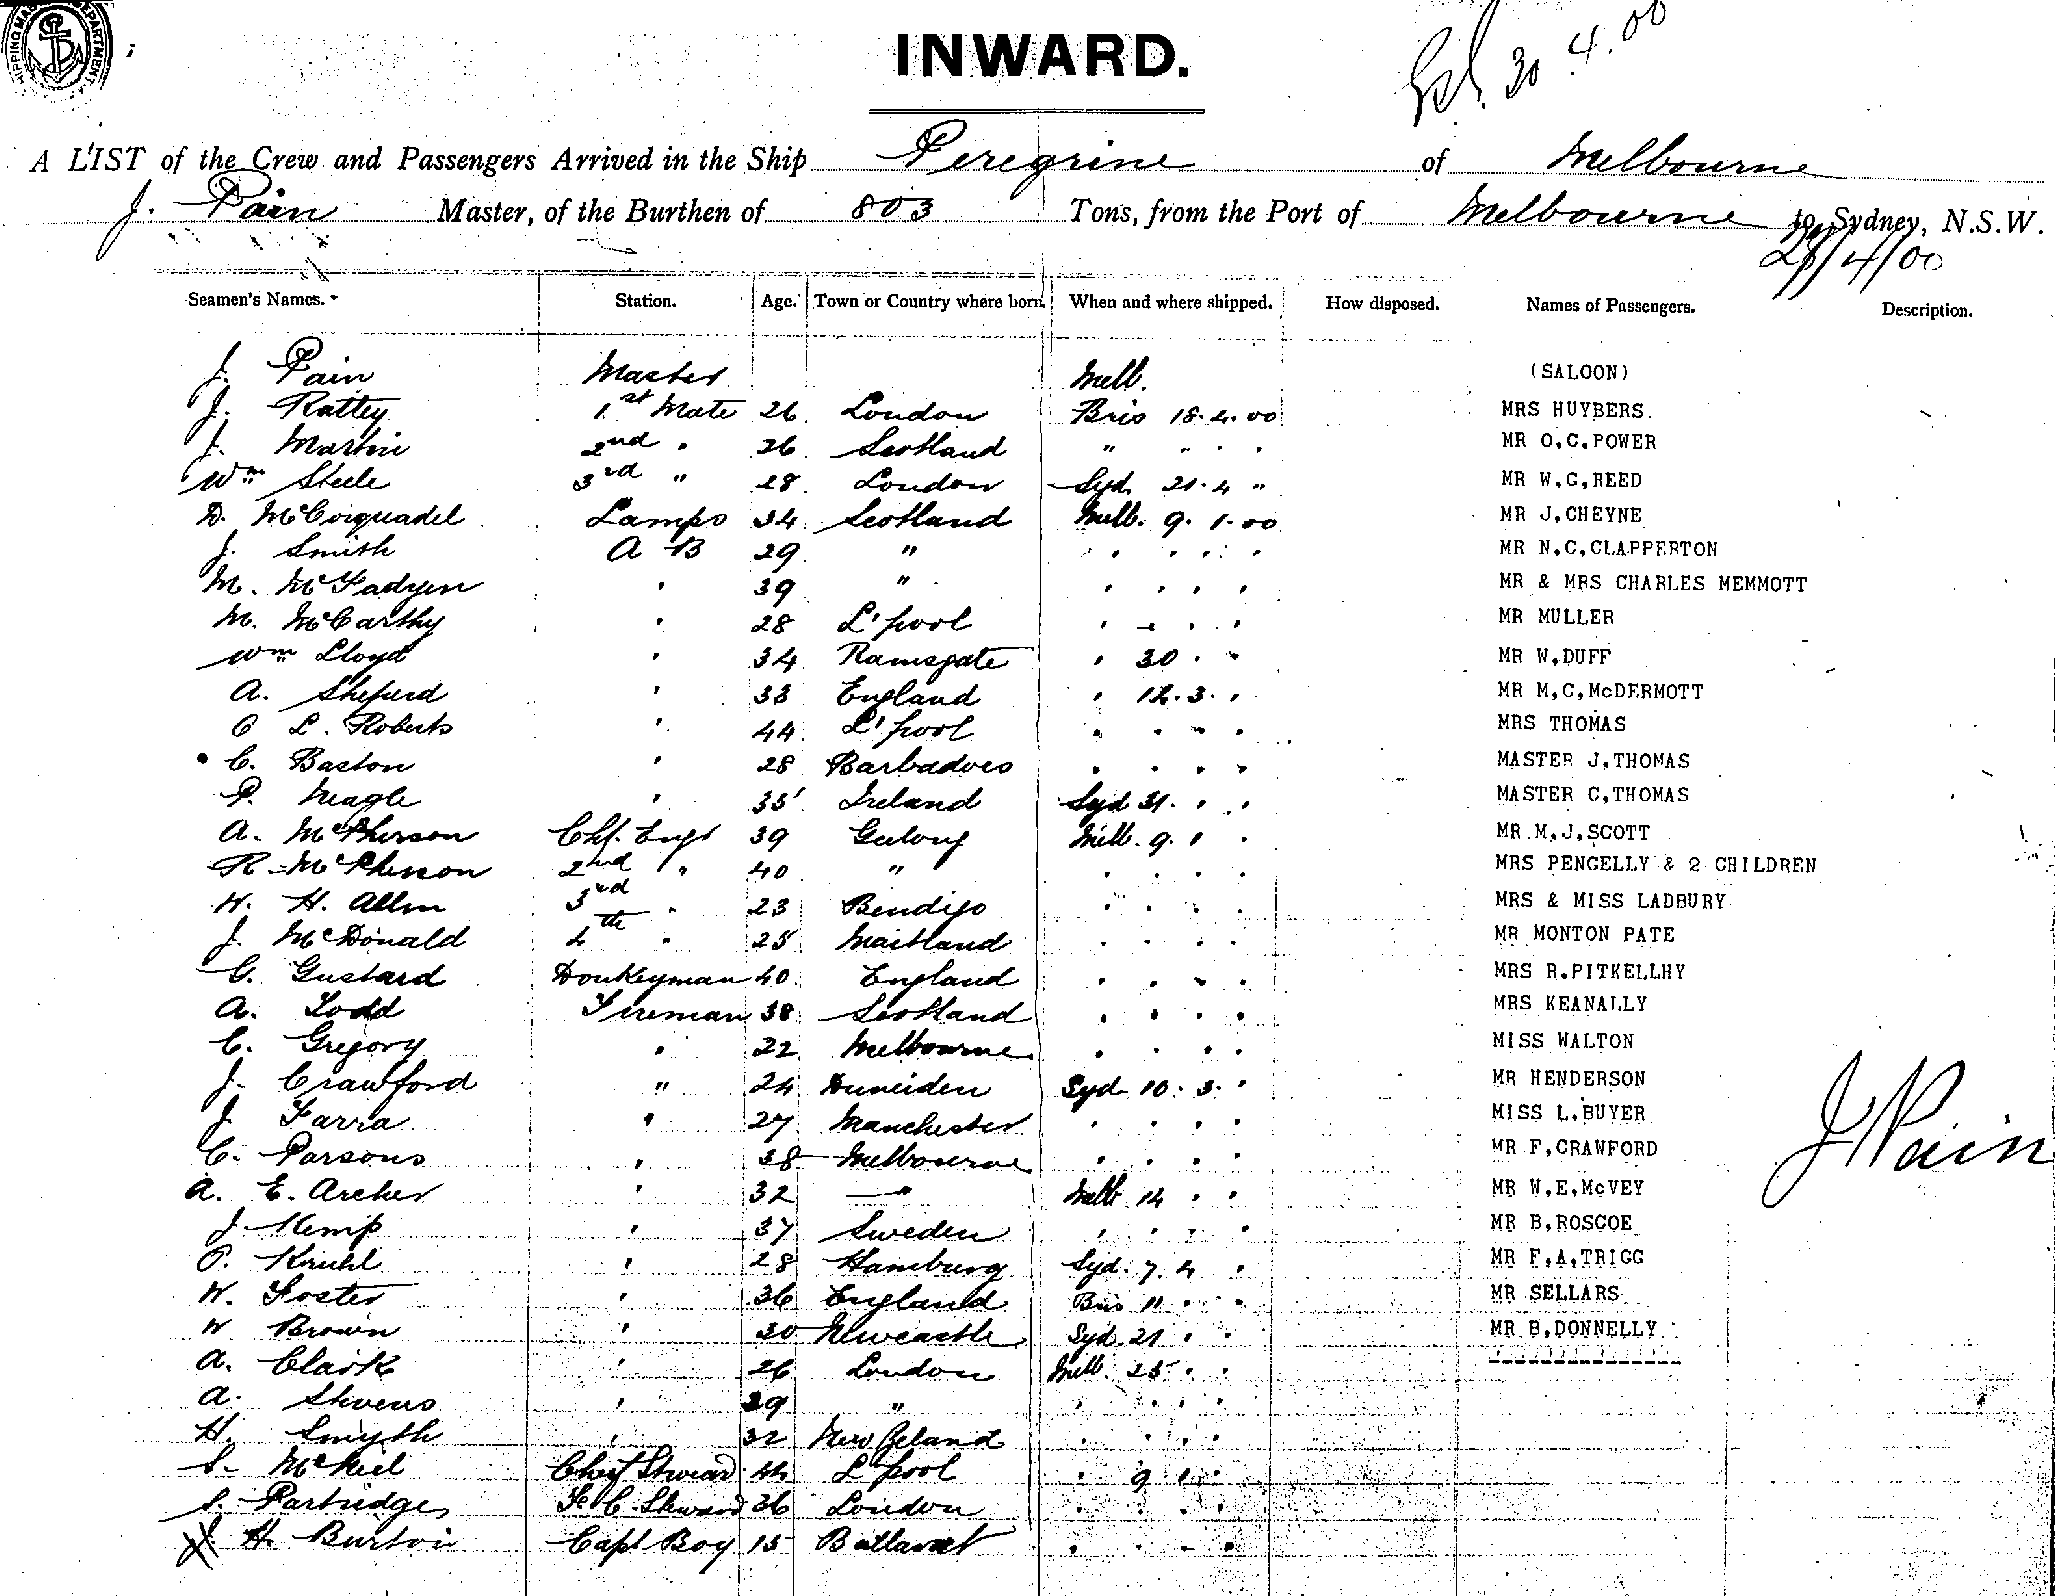 INWARD.
30.4.00
A LIST of the Crew and Passengers Arrived in the Ship Peregrine of Melbourne
J. Pain Master, of the Burthen of 803 Tons, from the Port of Melbourne to Sydney, N.S.W.
28/4/00
Seamen's Names. Station. Age. Town or Country where born. When and where shipped. How disposed. Names of Passengers. Description.
J. Pain Master Melb. (SALOON)
J. Rattey 1st Mate 26 London Bris 18.4.00 MRS HUYBERS.
J. Martin 2nd " 26 Scotland " " " " MR O.C.POWER
Wm Steele 3rd " 28 London Syd. 21.4 " MR W.C.REED
D. McCorquadel Lamps 34 Scotland Melb. 9.1.00 MR J.CHEYNE
J. Smith A B 29 " " " " " MR N.C.CLAPPERTON
M. McFadyen " 39 " " " " " MR & MRS CHARLES MEMMOTT
M. McCarthy " 28 L'pool " " " " MR MULLER
Wm Lloyd " 34 Ramsgate " 30 " " MR W.DUFF
A. Sheperd " 33 England " 12.3. " MR M.C.McDERMOTT
C L. Roberts " 44 L'pool " " " " MRS THOMAS
C. Baston " 28 Barbadoes " " " " MASTER J.THOMAS
P. Neagle " 35 Ireland Syd 31. " " MASTER C.THOMAS
A. McPherson Chf. Engr 39 Geelong Melb. 9. 1 " MR M.J.SCOTT
R. McPherson 2nd " 40 " " " " " MRS PENGELLY & 2 CHILDREN
W. H. Allen 3rd " 23 Bendigo " " " " MRS & MISS LADBURY
J. McDonald 4th " 25 Maitland " " " " MR MONTON PATE
G. Gustard Donkeyman 40 England " " " " MRS R.PITKELLHY
A. Todd Fireman 38 Scotland " " " " MRS KEANALLY
C. Gregory " 22 Melbourne " " " " MISS WALTON
J. Crawford " 24 Duneiden Syd 10. 3. " MR HENDERSON
J. Farra " 27 Manchester " " " " MISS L.BUYER
J Pain
C. Parsons " 38 Melbourne " " " " MR F.CRAWFORD
A. E. Archer " 32 " Melb 14 " " MR W.E.McVEY
J. Kemp " 37 Sweden " " " " MR B.ROSCOE
P. Kruhl " 28 Hamburg Syd. 7. 4 " MR F.A.TRIGG
W. Foster " 36 England Bris 11 " " MR SELLARS
W Brown " 30 Newcastle Syd. 21 " " MR B.DONNELLY
A. Clark " 26 London Melb. 25 " "
A. Stevens " 29 " " " " "
H. Smyth " 32 New Zeland " " " "
S. McNeil Chief Steward 44 L'pool " 9 1 "
S. Partridge F C Steward 36 London " " " "
H. Burton Capt Boy 15 Ballarat " " " "